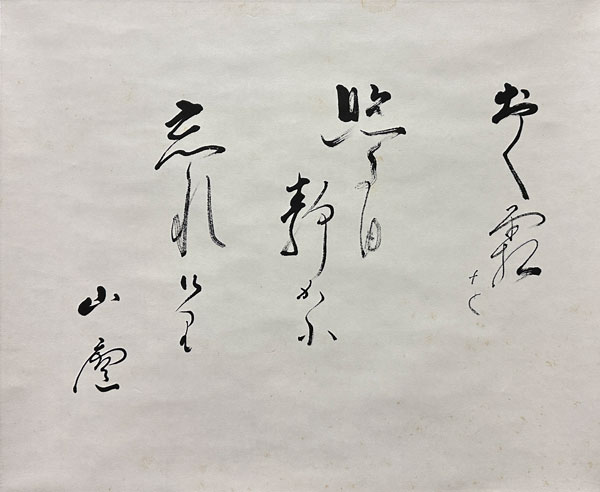 おく霜を
照る日
静かに
忘れけり
山廬